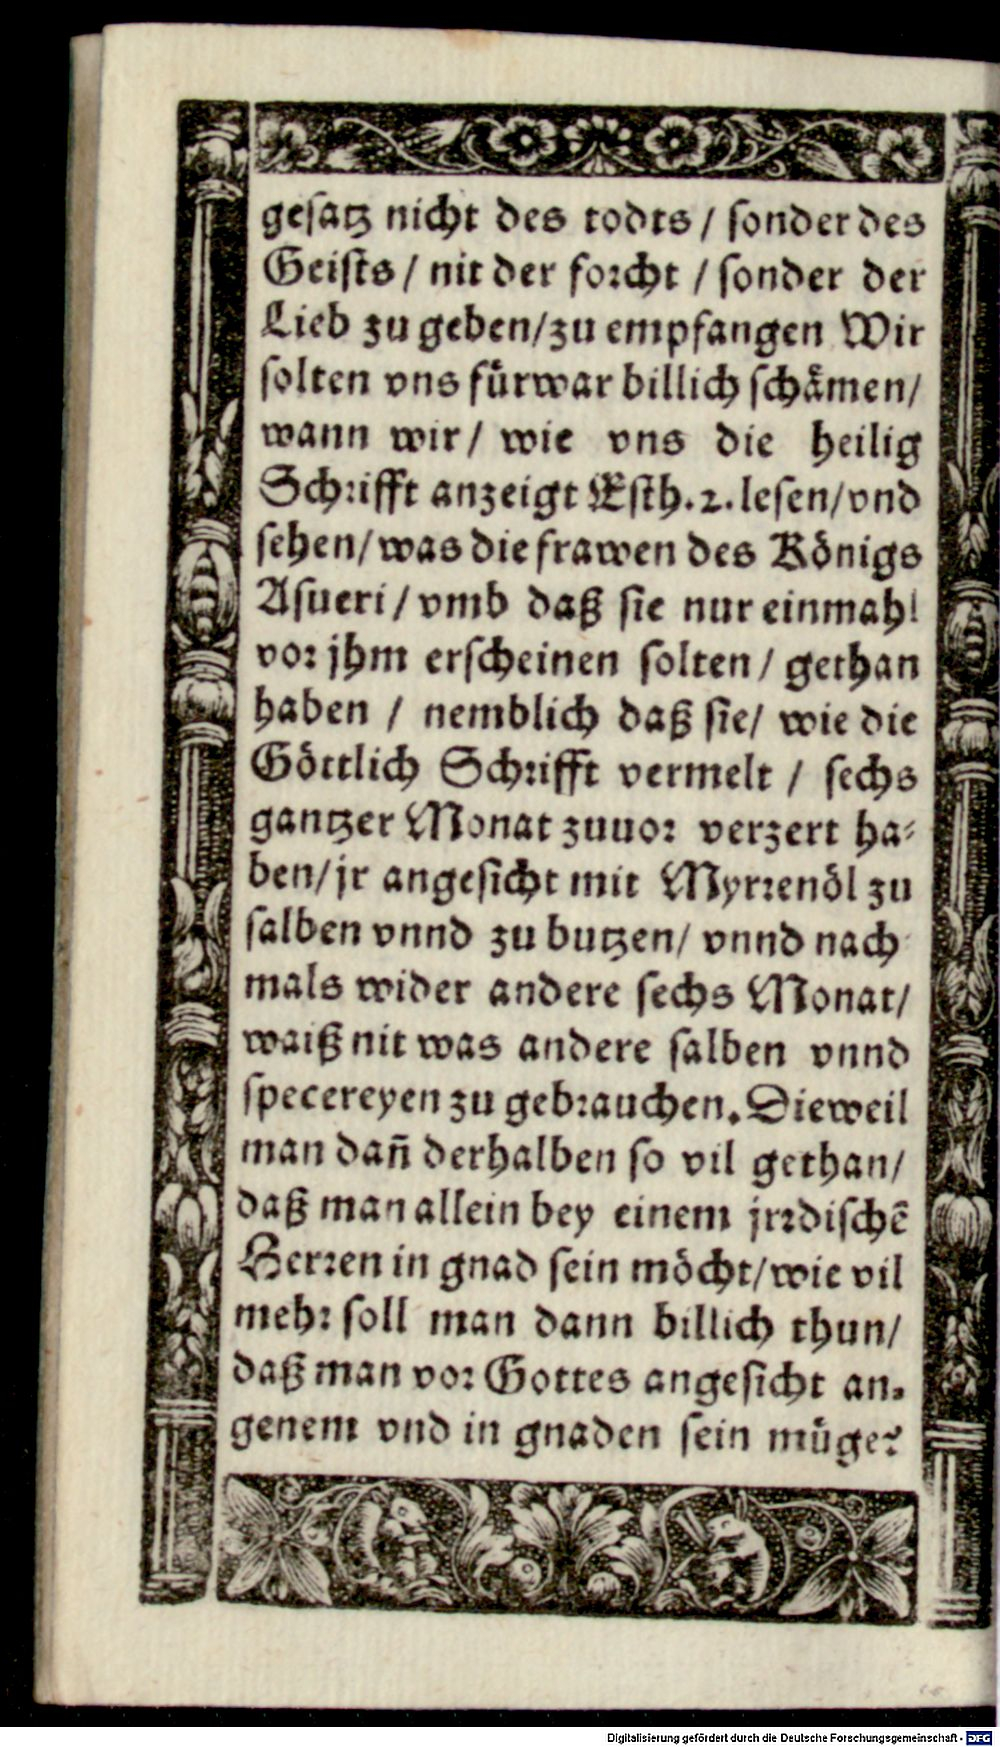 gesatz nicht des todts / sonder des
Geists / nit der forcht / sonder der
Lieb zu geben/zu empfangen Wir
solten vns fürwar billich schämen/
wann wir / wie vns die heilig
Schrifft anzeigt Esth.2.lesen/vnd
sehen/was die frawen des Königs
Asueri / vmb daß sie nur einmahl
vor jhm erscheinen solten / gethan
haben / nemblich daß sie/ wie die
Göttlich Schrifft vermelt / sechs
gantzer Monat zuuor verzert ha⸗
ben/jr angesicht mit Myrrenöl zu
salben vnnd zu butzen/ vnnd nach
mals wider andere sechs Monat/
waiß nit was andere salben vnnd
specereyen zu gebrauchen. Dieweil
man dañ derhalben so vil gethan/
daß man allein bey einem jrrdischẽ
Herren in gnad sein möcht/wie vil
mehr soll man dann billich thun/
daß man vor Gottes angesicht an⸗
genem vnd in gnaden sein müge?
Digitalisierung gefördert durch die Deutsche Forschungsgemeinschaft - DFG